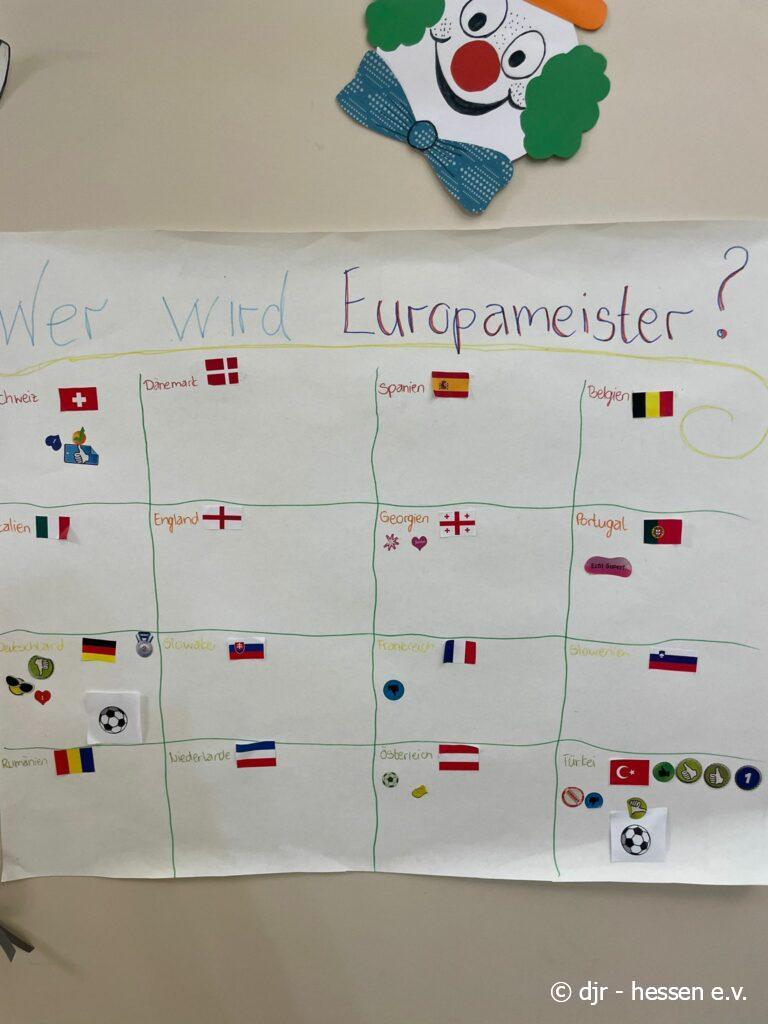 Wer wird Europameister?
chweiz Dänemark Spanien Belgien
talien England Georgien Portugal
Echt Super!
Deutschland Slowakei Frankreich Slowenien
Rumänien Niederlande Österreich Türkei
1
© djr - hessen e.v.